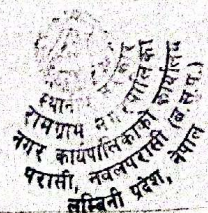 स्थानीय
रामग्राम नगरपालिका
नगर कार्यपालिकाको कार्यालय
परासी, नवलपरासी (ब.सु.प.)
लुम्बिनी प्रदेश, नेपाल